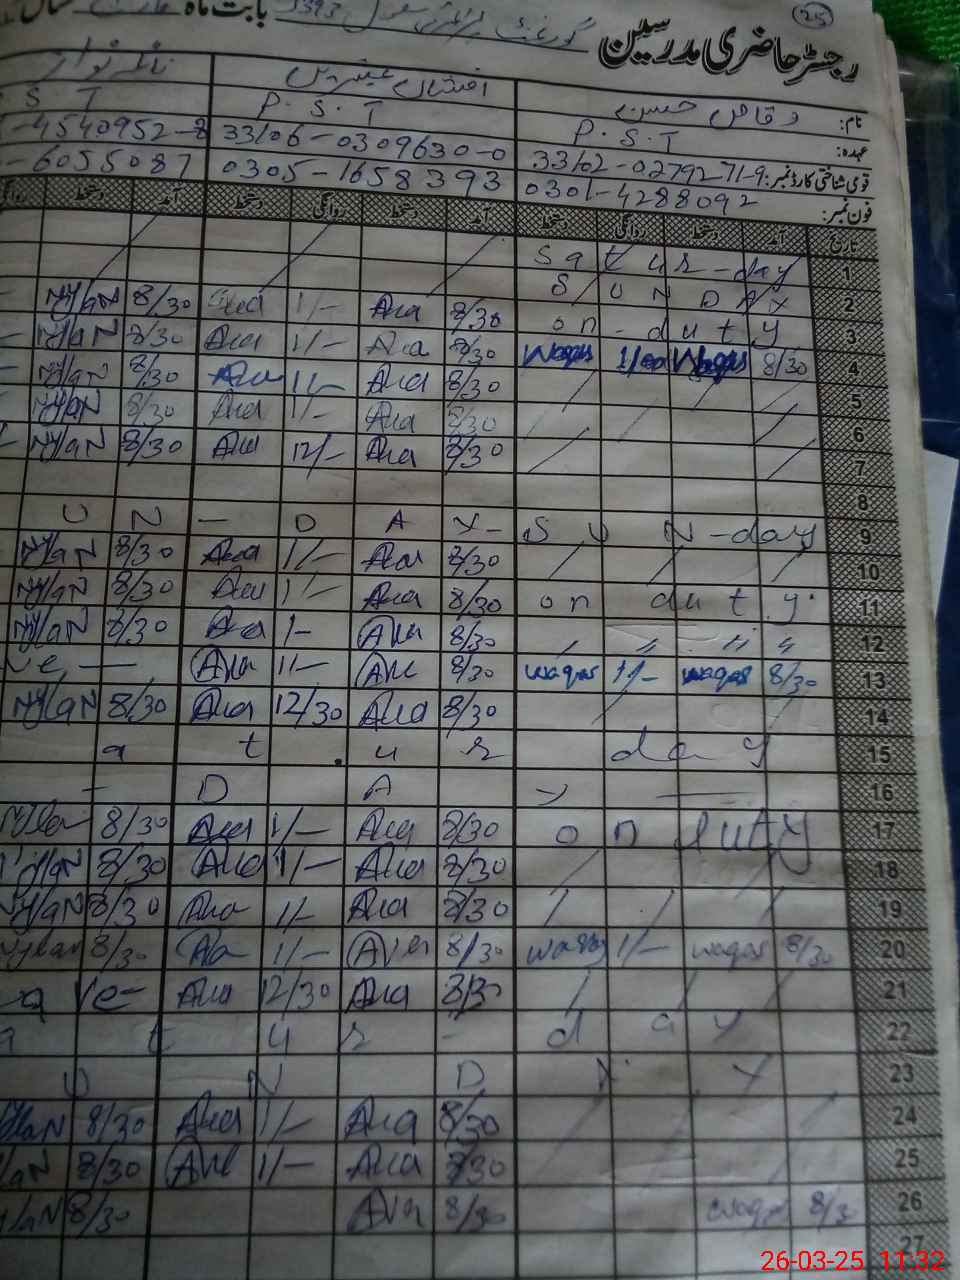 25
رجسٹر حاضری مدرسین بابت ماہ
نام: وقاص حسن
عہدہ: P.S.T P.S.T S T
قومی شناختی کارڈ نمبر: 33102-0279271-9 33106-0309630-0 -4540952-8
فون نمبر: 0301-4288092 0305-1658393 -6055087
تاریخ آمد دستخط روانگی دستخط آمد دستخط روانگی دستخط آمد دستخط
1 Satur-day
2 SUNDAY
3 on-duty 8/30 Ana 1/- 8/30 NylaN
4 8/30 Waqas 1/00 Waqas 8/30 Ana 1/- Ana 8/30 NylaN
5 8/30 Ana 1/- Ana 8/30 NylaN
6 8/30 Ana 1/- Ana 8/30 NylaN
7 8/30 Ana 12/- Ana 8/30 NylaN
8
9 SUN-day UN-DAY-
10 8/30 Ana 1/- Ana 8/30 NylaN
11 on duty. 8/30 Ana 1/- Ana 8/30 NylaN
12 " " " " 8/30 Ana 1- Ana 8/30 NylaN
13 8/30 waqas 1/- waqas 8/30 Ana 1/- Ana ve —
14 8/30 Ana 12/30 Ana 8/30 NylaN
15 a t u r day
16 - D A Y
17 on duty 8/30 Ana 1/- Ana 8/30 Nyla
18 8/30 Ana 1/- Ana 8/30 NylaN
19 8/30 Ana 1/- Ana 8/30 NylaN
20 8/30 waqas 1/- waqas 8/30 Ana 1/- Ana 8/30 Nylan
21 8/30 Ana 12/30 Ana a ve-
22 a t u r - d a y
23 U N D A Y
24 8/30 Ana 1/- Ana 8/30 NylaN
25 8/30 Ana 1/- Ana 8/30 laN
26 8/30 waqas 8/30 Ana 8/30 ylaN
27
26-03-25 11:32